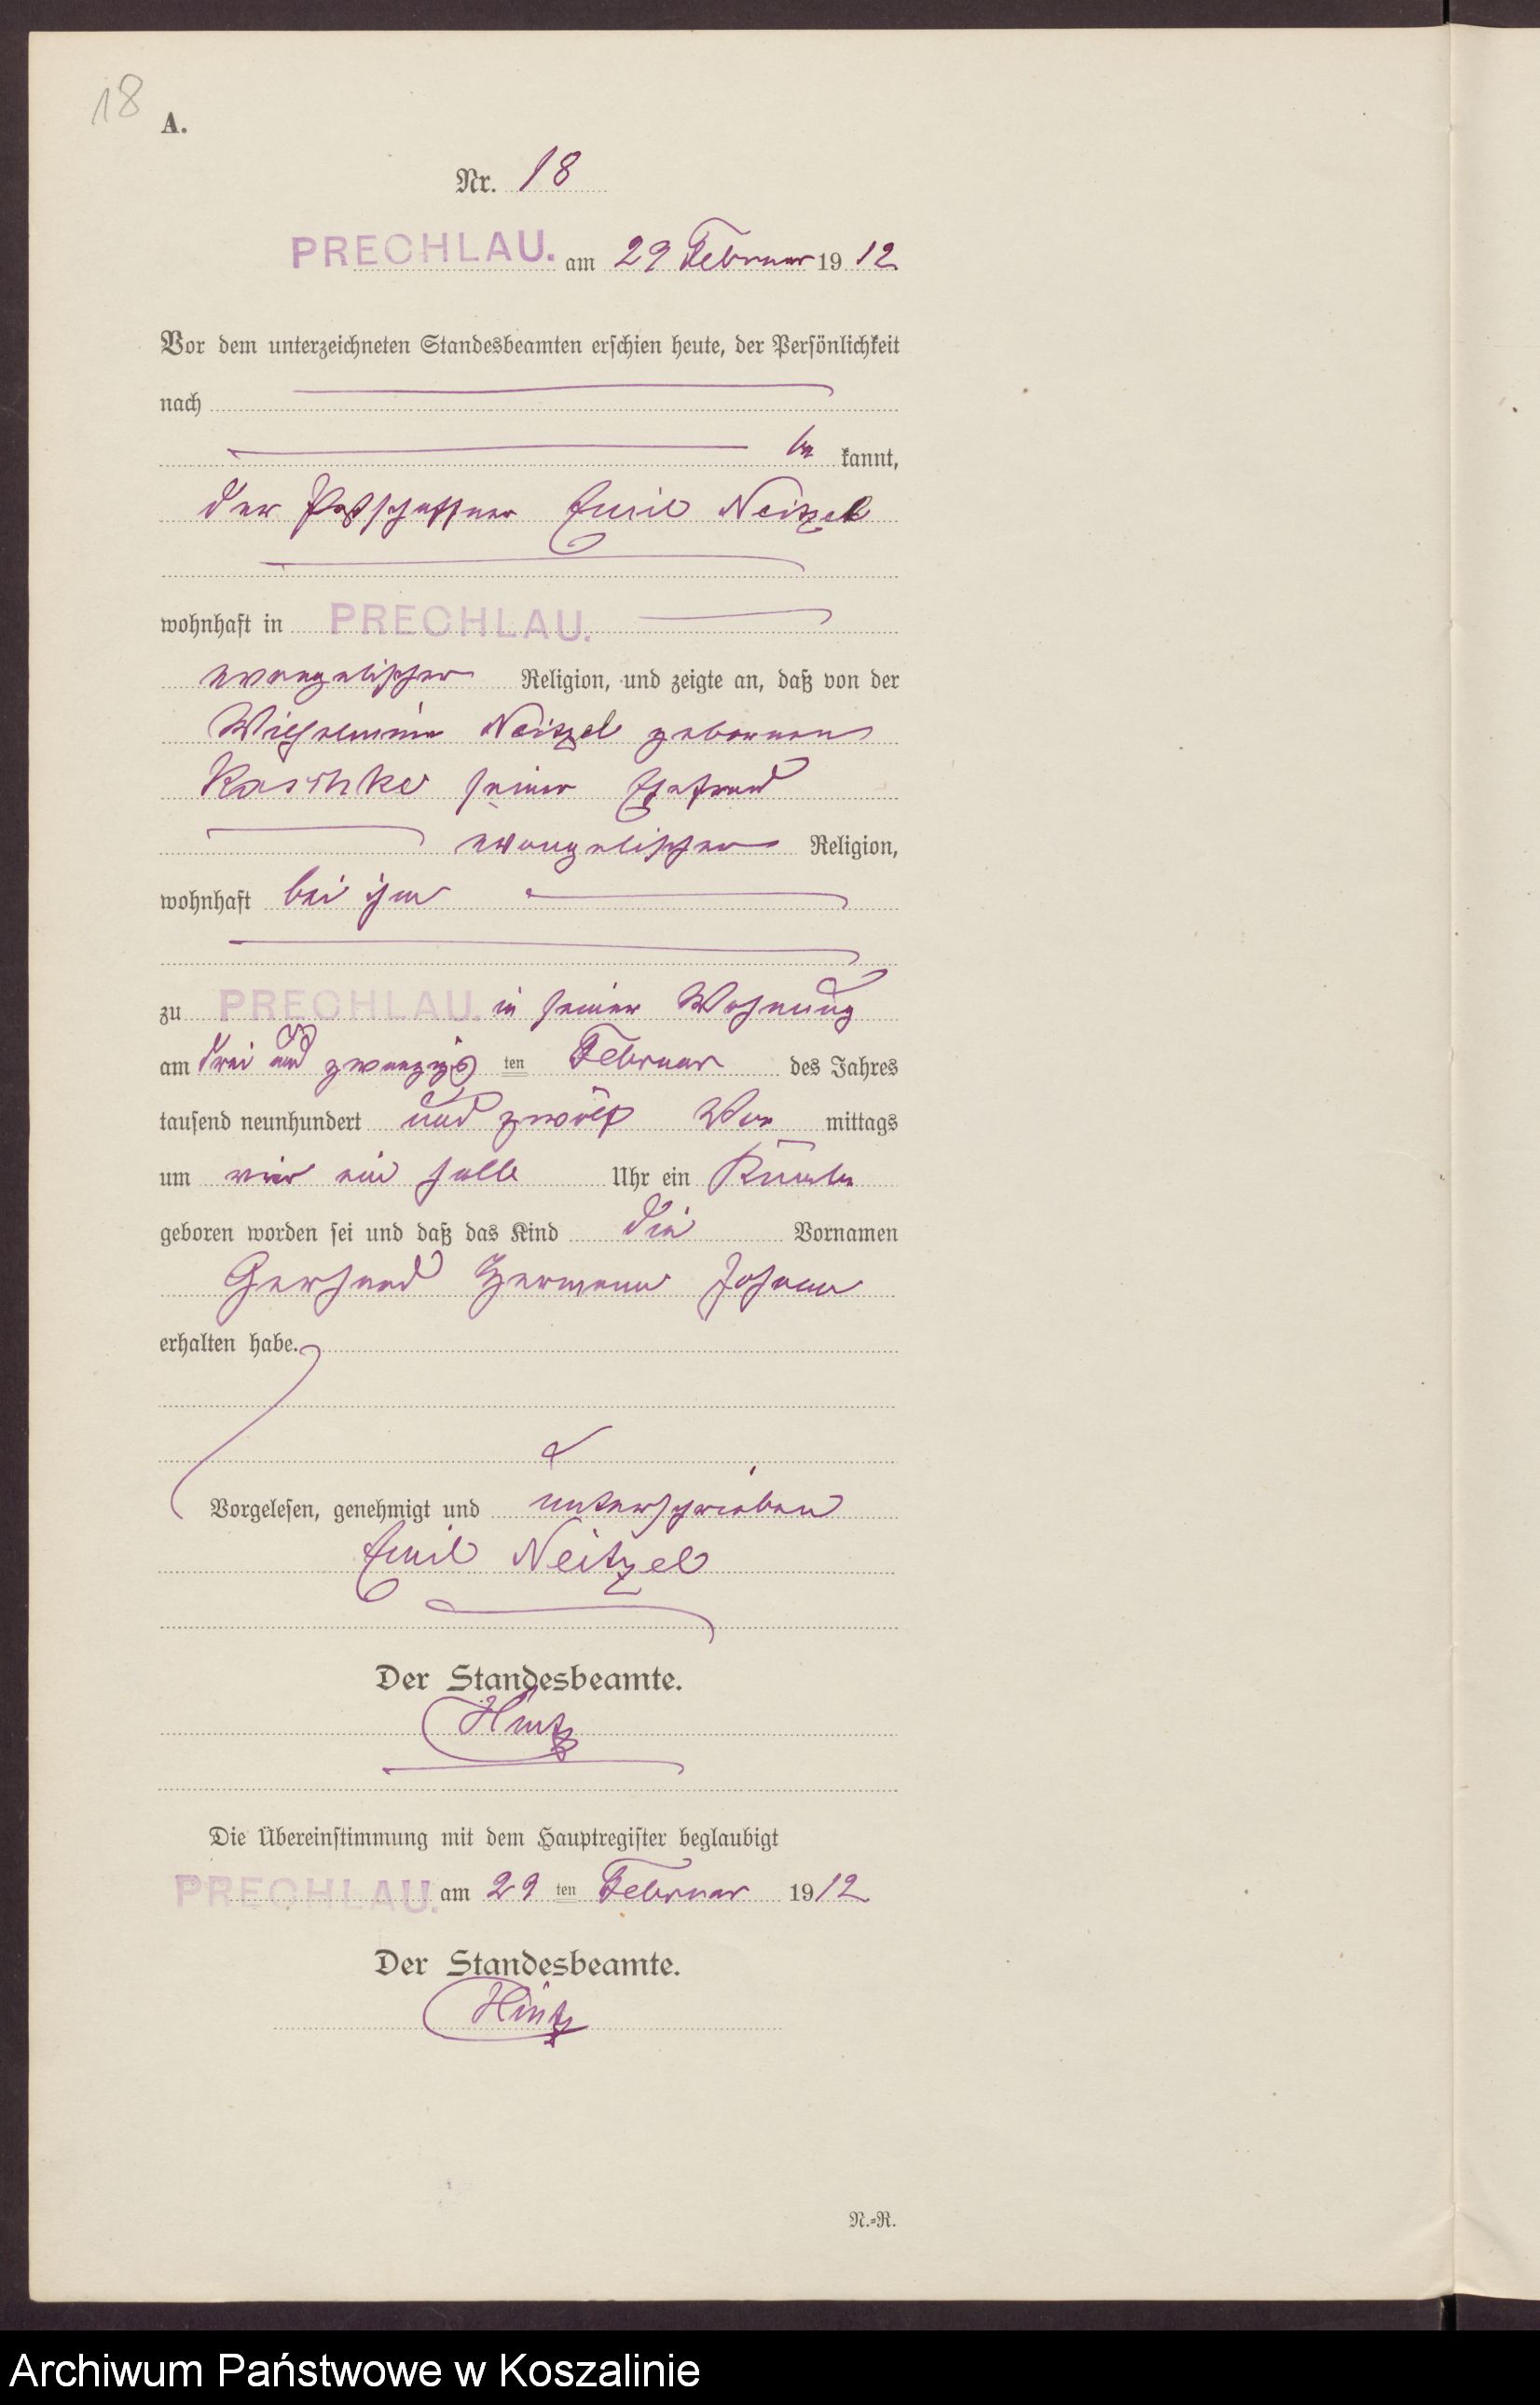 18
A.
Nr. 18
PRECHLAU. am 29 Februar 1912
Vor dem unterzeichneten Standesbeamten erschien heute, der Persönlichkeit
nach
be kannt,
der Postschaffner Emil Neitzel
wohnhaft in PRECHLAU.
evangelischer Religion, und zeigte an, daß von der
Wilhelmine Neitzel geborenen
Raschke seiner Ehefrau
evangelischer Religion,
wohnhaft bei ihm
zu PRECHLAU. in seiner Wohnung
am drei und zwanzigs ten Februar des Jahres
tausend neunhundert und zwölf Vor mittags
um vier ein halb Uhr ein Knabe
geboren worden sei und daß das Kind die Vornamen
Gerhard Hermann Johann
erhalten habe.
Vorgelesen, genehmigt und unterschrieben
Emil Neitzel
Der Standesbeamte.
Hintz
Die Übereinstimmung mit dem Hauptregister beglaubigt
PRECHLAU. am 29 ten Februar 1912
Der Standesbeamte.
Hintz
N.=R.
Archiwum Państwowe w Koszalinie